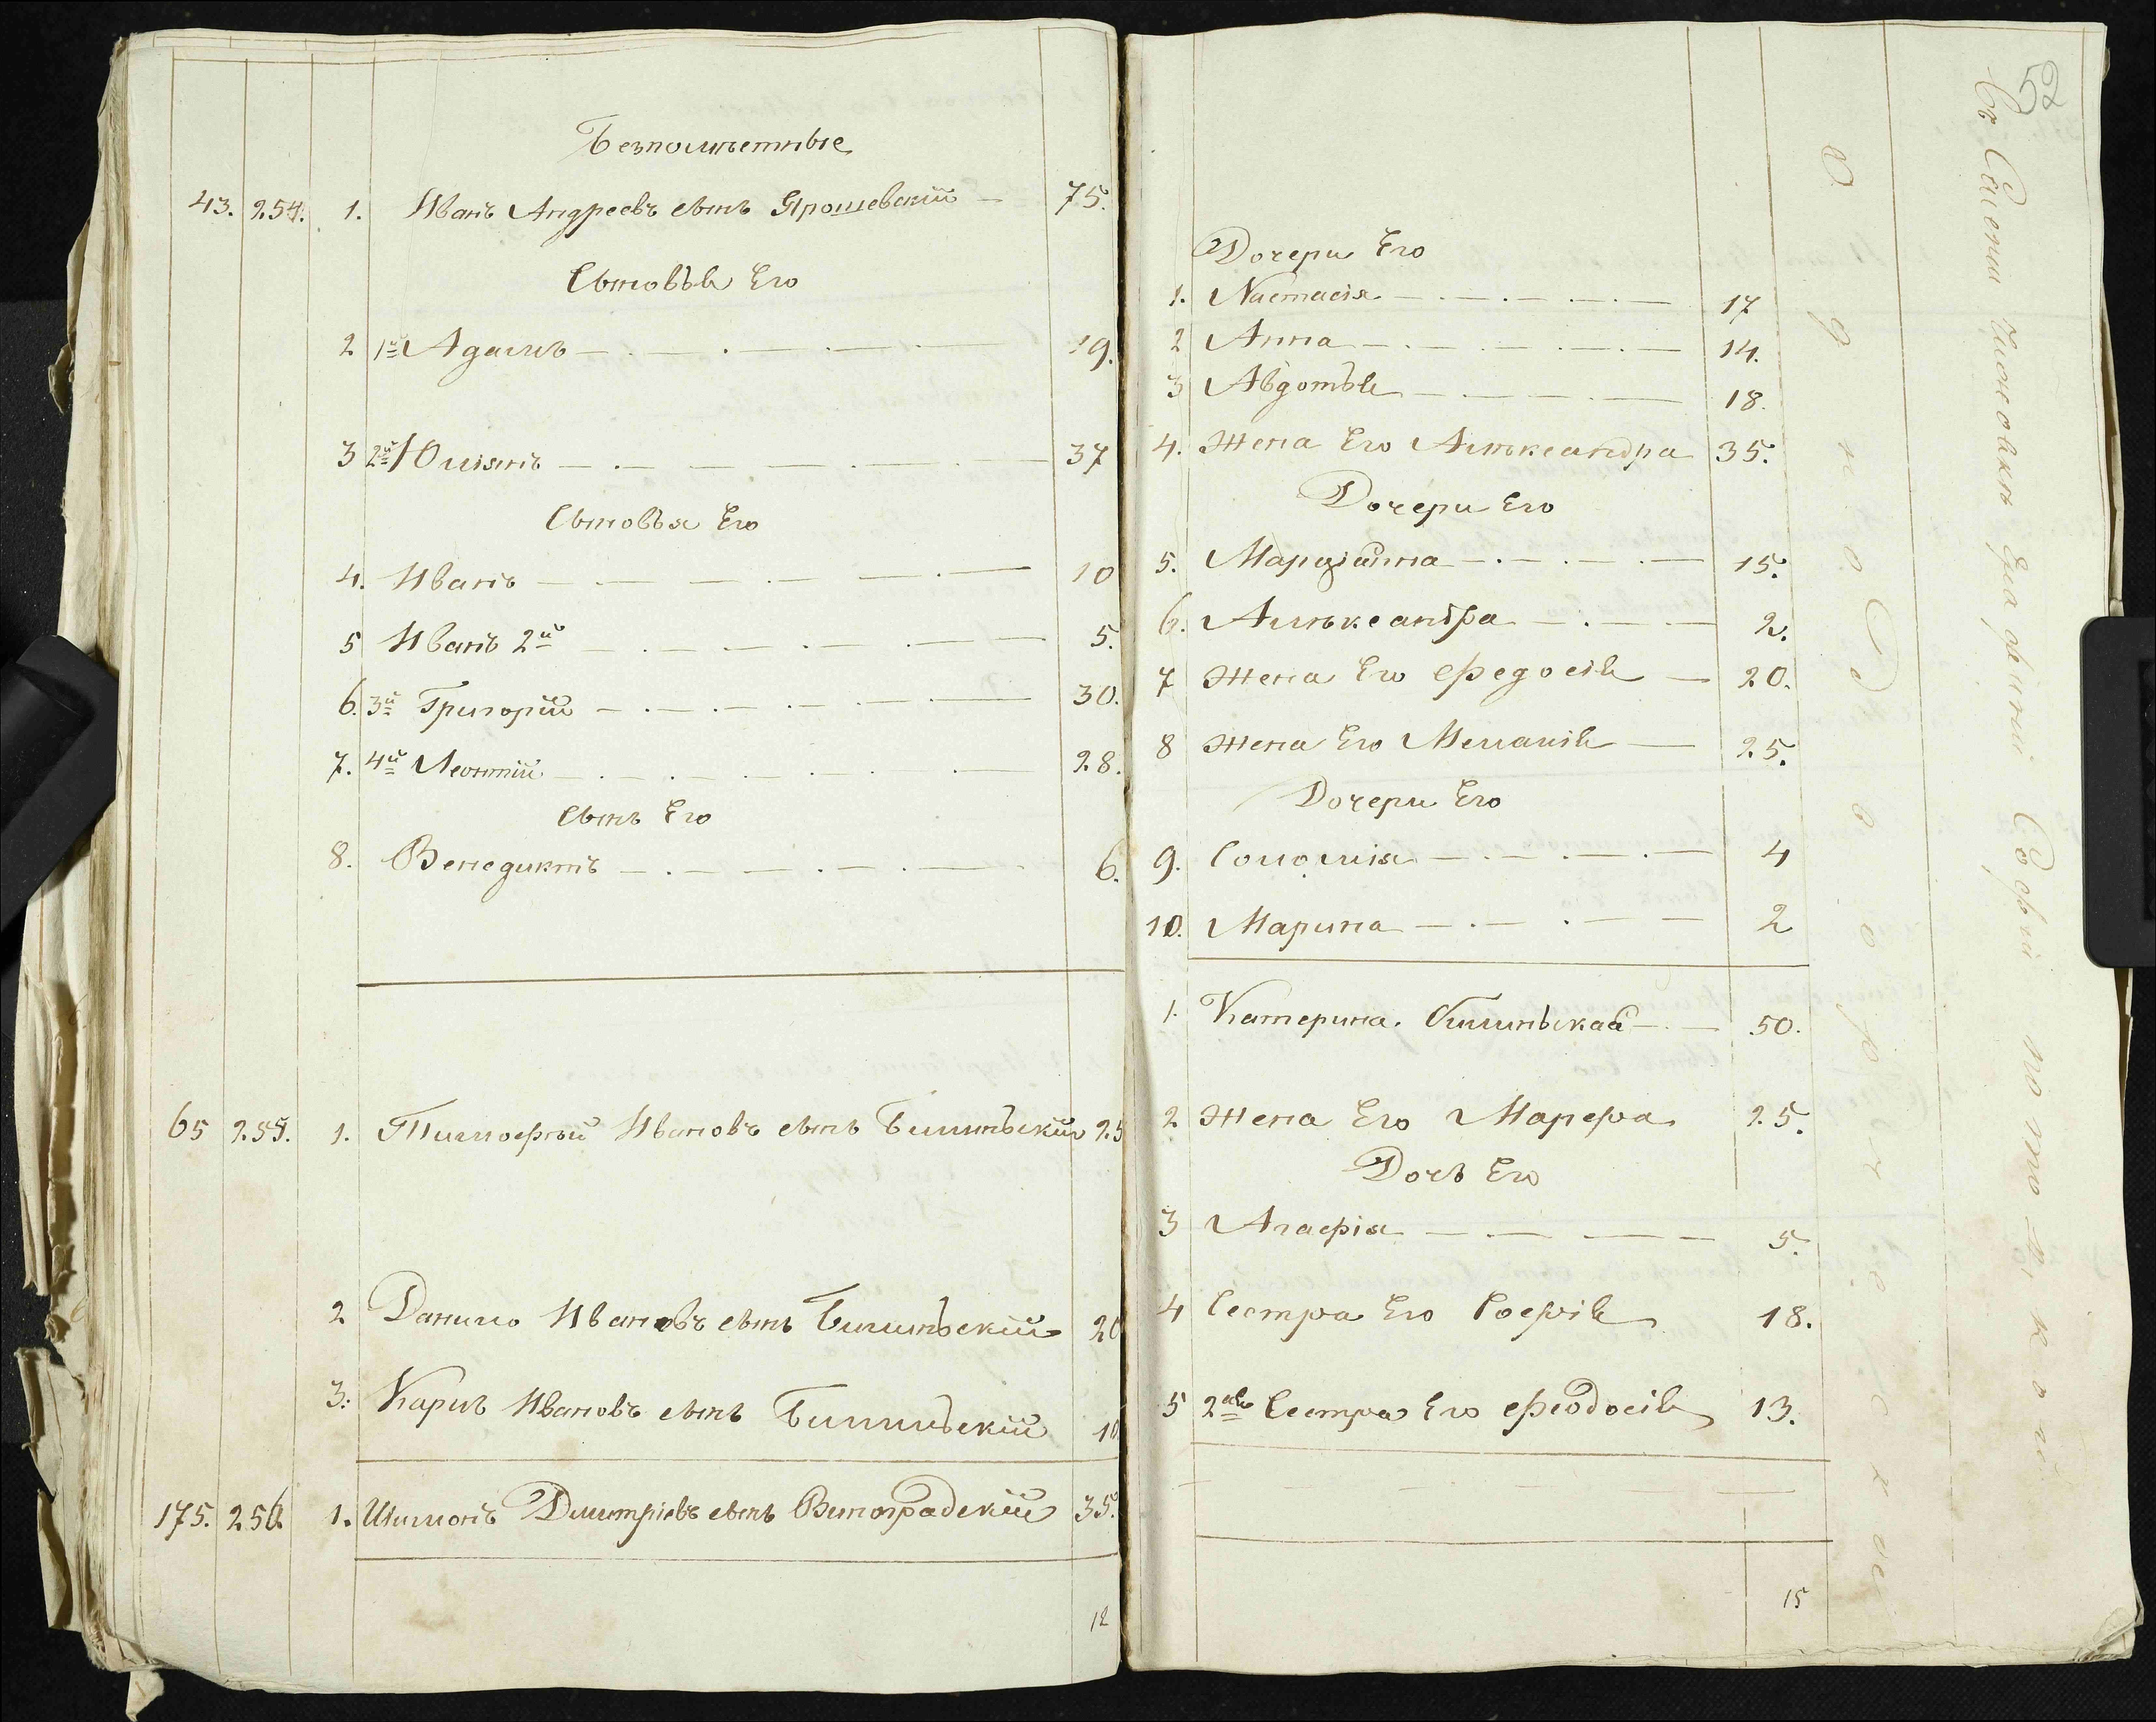 Безпомѣстныя
43. 254. 1. Иванъ Андреевъ сынъ Ярошевскій — 75.
Сыновья Его
2 1й Адамъ — 19.
3 2й Юліянъ — 37
Сыновья Его
4. Иванъ — 10
5 Иванъ 2й — 5.
6. 3й Григорій — 30.
7. 4й Леонтій — 28.
Сынъ Его
8. Венедиктъ — 6.
65 255. 1. Тимофѣй Ивановъ сынъ Билинскій 25
2 Данило Ивановъ сынъ Билинскій 20
3. Карпъ Ивановъ сынъ Билинскій 10
175. 256. 1. Шимонъ Дмитріевъ сынъ Виноградскій 35.
12
52
Дочери Его
1. Настасія — 17
2 Анна — 14.
3 Авдотья — 18.
4. Жена Его Алѣксандра 35.
Дочери Его
5. Марціанна — 15.
6. Алѣксандра — 2.
7 Жена Его Федосія — 20.
8 Жена Его Меланія — 25.
Дочери Его
9. Соломія — 4
10. Марина — 2
1. Катерина Билинская — 50.
2 Жена Его Марфа 25.
Дочь Его
3 Агафія — 5.
4 Сестра Его Софія 18.
5 2я Сестра Его Феодосія 13.
15
Однодворческое
Въ Селеніи
Софіи